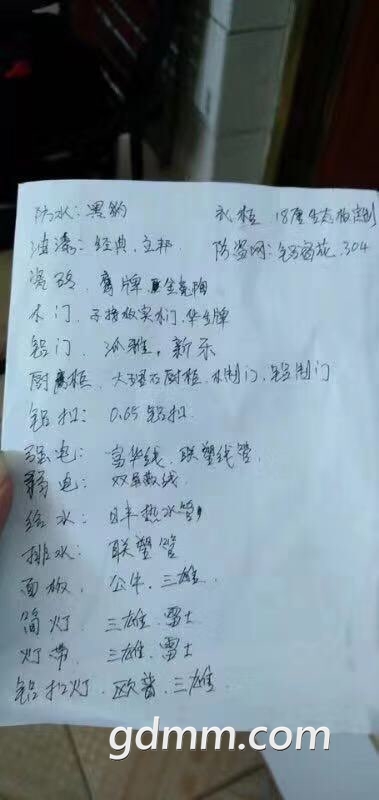 防水：黑豹
衣柜 18厘生态板定制
油漆：经典.立邦
防盗网：铝窗花.304
瓷砖 鹰牌.
木门、子接板实木门.华生牌
铝门、派雅，新乐
厨柜、大理石厨柜.木制门、铝制门
铝扣：0.65铝扣
强电：富华线、联塑线管.
弱电：双导数线.
给水：日丰热水管
排水：联塑管
面板、公牛、三雄.
筒灯、三雄.雷士
灯带、三雄.雷士
铝扣灯、欧普.三雄.
gdmm.com